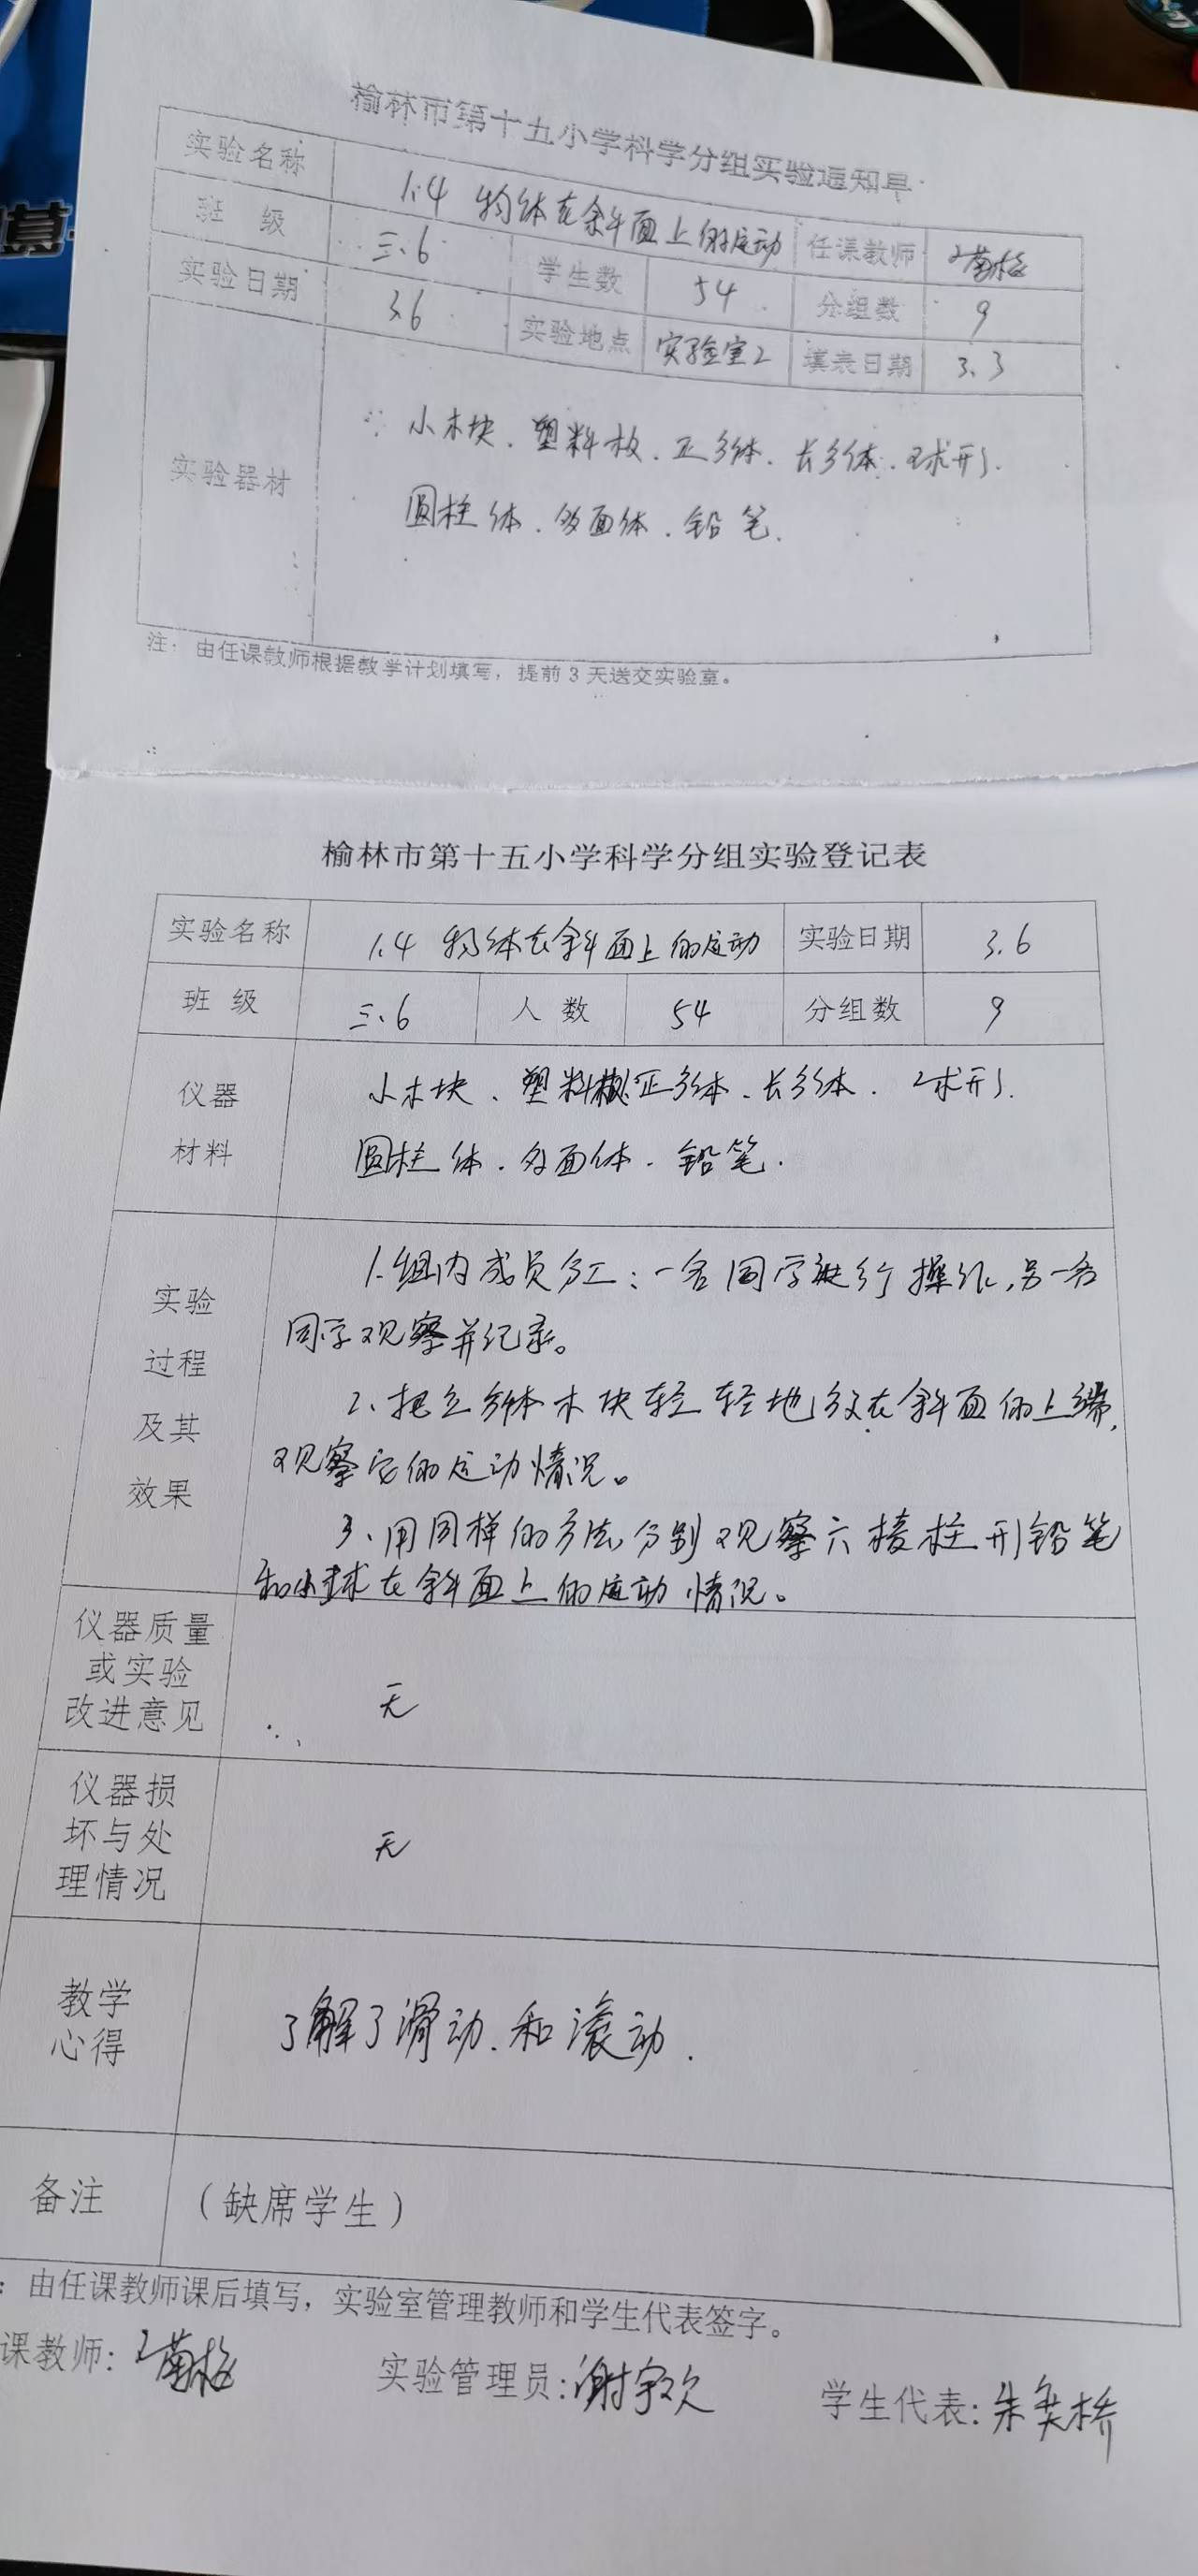 榆林市第十五小学科学分组实验通知单
实验名称 1.4 物体在斜面上的运动 任课教师 王菊梅
班 级 三.6 学生数 54 分组数 9
实验日期 3.6 实验地点 实验室2 填表日期 3.3
实验器材
小木块、塑料板、正方体、长方体、球形、
圆柱体、多面体、铅笔.
注:由任课教师根据教学计划填写,提前3天送交实验室。
榆林市第十五小学科学分组实验登记表
实验名称 1.4 物体在斜面上的运动 实验日期 3.6
班 级 三.6 人 数 54 分组数 9
仪器
材料
小木块、塑料板、正方体、长方体、球形、
圆柱体、多面体、铅笔.
实验
过程
及其
效果
1.组内成员分工:一名同学进行操作,另一名
同学观察并纪录。
2、把正方体木块轻轻地放在斜面的上端,
观察它的运动情况。
3、用同样的方法,分别观察六棱柱形铅笔
和小球在斜面上的运动情况。
仪器质量
或实验
改进意见
无
仪器损
坏与处
理情况
无
教学
心得
了解了滑动、和滚动.
备注 (缺席学生)
:由任课教师课后填写,实验室管理教师和学生代表签字。
课教师:王菊梅 实验管理员:谢宇欢 学生代表:朱奕桥